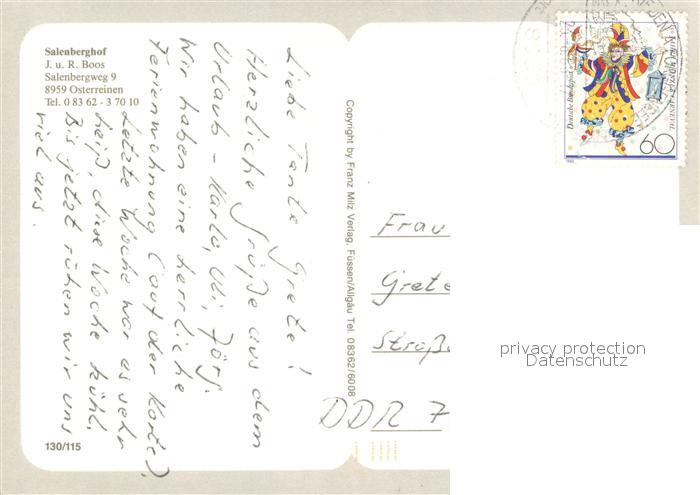 Salenberghof
J. u. R. Boos
Salenbergweg 9
8959 Osterreinen
Tel. 0 83 62 - 3 70 10
Liebe Tante Grete!
Herzliche Grüße aus dem
Urlaub - Karla, Uli, Jörg.
Wir haben eine herrliche
Ferienwohnung (auf der Karte).
Letzte Woche war es sehr
heiß, diese Woche kühl.
Bis jetzt ruhen wir uns
viel aus.
130/115
Copyright by Franz Milz Verlag, Füssen/Allgäu Tel. 08362/6008
Deutsche Bundespost
60
Frau
Grete
Straß
DDR 7
privacy protection
Datenschutz